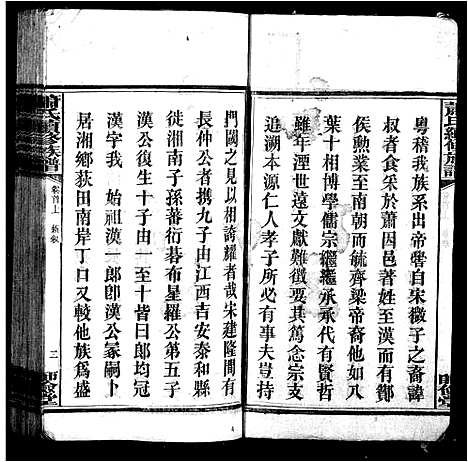 蕭氏續修族譜
粵稽我族系出帝嚳自宋微子之裔諱
叔者食采於蕭因邑著姓至漢而
侯勲業至南朝而毓齊梁帝裔他如八
葉十相博學儒宗繼繼承承代有賢哲
雖年湮世遠文獻難徵要其篤念宗支
追溯本源仁人孝子所必有事夫豈持
門國之見以相誇耀者哉宋建隆間有
長仲公者携九子由江西吉安泰和縣
徙湘南子孫蕃衍碁布星羅公第五子
漢公復生小子由一至十皆曰郎均冠
漢字我始祖漢一郎即漢公冢嗣卜
居湘鄉荻田南岸丁口又較他族為盛
蕭氏續修族譜
卷首上
新敘
三
師儉堂